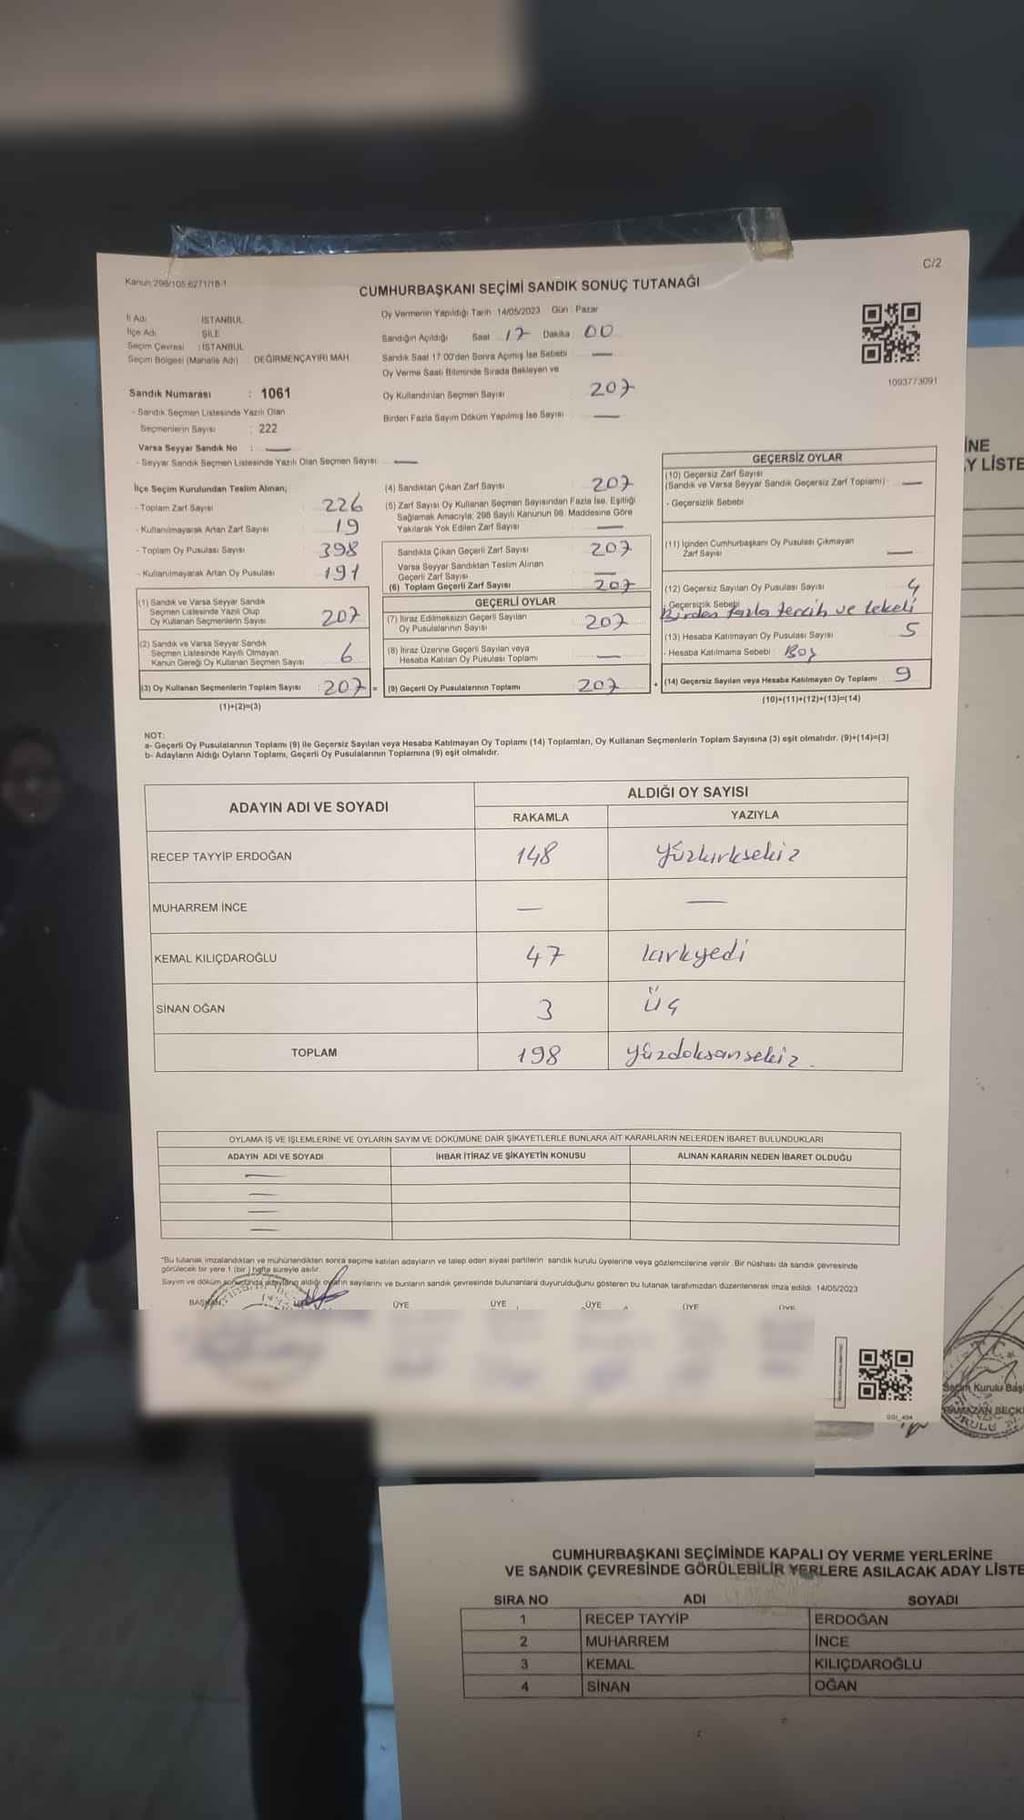 C/2
Kanun 298/105 6271/18-1
CUMHURBAŞKANI SEÇİMİ SANDIK SONUÇ TUTANAĞI
İl Adı : İSTANBUL
İlçe Adı : ŞİLE
Seçim Çevresi : İSTANBUL
Seçim Bölgesi (Mahalle Adı) : DEĞİRMENÇAYIRI MAH.
Sandık Numarası : 1061
- Sandık Seçmen Listesinde Yazılı Olan
Seçmenlerin Sayısı : 222
Varsa Seyyar Sandık No : —
- Seyyar Sandık Seçmen Listesinde Yazılı Olan Seçmen Sayısı: —
Oy Vermenin Yapıldığı Tarih 14/05/2023 Gün : Pazar
Sandığın Açıldığı Saat 17 Dakika 00
Sandık Saat 17:00'den Sonra Açılmış İse Sebebi —
Oy Verme Saati Bitiminde Sırada Bekleyen ve
Oy Kullandırılan Seçmen Sayısı 207
Birden Fazla Sayım Döküm Yapılmış İse Sayısı —
1093773091
İlçe Seçim Kurulundan Teslim Alınan;
- Toplam Zarf Sayısı 226
- Kullanılmayarak Artan Zarf Sayısı 19
- Toplam Oy Pusulası Sayısı 398
- Kullanılmayarak Artan Oy Pusulası 191
(1) Sandık ve Varsa Seyyar Sandık
Seçmen Listesinde Yazılı Olup
Oy Kullanan Seçmenlerin Sayısı 207
(2) Sandık ve Varsa Seyyar Sandık
Seçmen Listesinde Kayıtlı Olmayan
Kanun Gereği Oy Kullanan Seçmen Sayısı 6
(3) Oy Kullanan Seçmenlerin Toplam Sayısı 207
(1)+(2)=(3)
(4) Sandıktan Çıkan Zarf Sayısı 207
(5) Zarf Sayısı Oy Kullanan Seçmen Sayısından Fazla İse, Eşitliği
Sağlamak Amacıyla; 298 Sayılı Kanunun 98. Maddesine Göre
Yakılarak Yok Edilen Zarf Sayısı —
Sandıkta Çıkan Geçerli Zarf Sayısı 207
Varsa Seyyar Sandıktan Teslim Alınan
Geçerli Zarf Sayısı —
(6) Toplam Geçerli Zarf Sayısı 207
GEÇERLİ OYLAR
(7) İtiraz Edilmeksizin Geçerli Sayılan
Oy Pusulalarının Sayısı 207
(8) İtiraz Üzerine Geçerli Sayılan veya
Hesaba Katılan Oy Pusulası Toplamı —
= (9) Geçerli Oy Pusulalarının Toplamı 207
GEÇERSİZ OYLAR
(10) Geçersiz Zarf Sayısı
(Sandık ve Varsa Seyyar Sandık Geçersiz Zarf Toplamı) —
- Geçersizlik Sebebi
(11) İçinden Cumhurbaşkanı Oy Pusulası Çıkmayan
Zarf Sayısı —
(12) Geçersiz Sayılan Oy Pusulası Sayısı 4
- Geçersizlik Sebebi
Birden fazla tercih ve lekeli
(13) Hesaba Katılmayan Oy Pusulası Sayısı 5
- Hesaba Katılmama Sebebi Boş
+ (14) Geçersiz Sayılan veya Hesaba Katılmayan Oy Toplamı 9
(10)+(11)+(12)+(13)=(14)
NOT:
a- Geçerli Oy Pusulalarının Toplamı (9) ile Geçersiz Sayılan veya Hesaba Katılmayan Oy Toplamı (14) Toplamları, Oy Kullanan Seçmenlerin Toplam Sayısına (3) eşit olmalıdır. (9)+(14)=(3)
b- Adayların Aldığı Oyların Toplamı, Geçerli Oy Pusulalarının Toplamına (9) eşit olmalıdır.
ADAYIN ADI VE SOYADI
ALDIĞI OY SAYISI
RAKAMLA YAZIYLA
RECEP TAYYİP ERDOĞAN 148 Yüzkırksekiz
MUHARREM İNCE — —
KEMAL KILIÇDAROĞLU 47 kırkyedi
SİNAN OĞAN 3 üç
TOPLAM 198 yüzdoksansekiz.
OYLAMA İŞ VE İŞLEMLERİNE VE OYLARIN SAYIM VE DÖKÜMÜNE DAİR ŞİKAYETLERLE BUNLARA AİT KARARLARIN NELERDEN İBARET BULUNDUKLARI
ADAYIN ADI VE SOYADI İHBAR İTİRAZ VE ŞİKAYETİN KONUSU ALINAN KARARIN NEDEN İBARET OLDUĞU
—
—
—
—
*Bu tutanak imzalandıktan ve mühürlendikten sonra seçime katılan adayların ve talep eden siyasi partilerin sandık kurulu üyelerine veya gözlemcilerine verilir. Bir nüshası da sandık çevresinde
görülecek bir yere 1 (bir) hafta süreyle asılır.
Sayım ve döküm sonucunda adayların aldığı oyların sayılarını ve bunların sandık çevresinde bulunanlara duyurulduğunu gösteren bu tutanak tarafımızdan düzenlenerek imza edildi. 14/05/2023
BAŞKAN ÜYE ÜYE ÜYE ÜYE ÜYE
İNE
Y LİSTE
T.C.
Seçim Kurulu Başk
RAMAZAN SEÇKİ
CUMHURBAŞKANI SEÇİMİNDE KAPALI OY VERME YERLERİNE
VE SANDIK ÇEVRESİNDE GÖRÜLEBİLİR YERLERE ASILACAK ADAY LİSTE
SIRA NO ADI SOYADI
1 RECEP TAYYİP ERDOĞAN
2 MUHARREM İNCE
3 KEMAL KILIÇDAROĞLU
4 SİNAN OĞAN